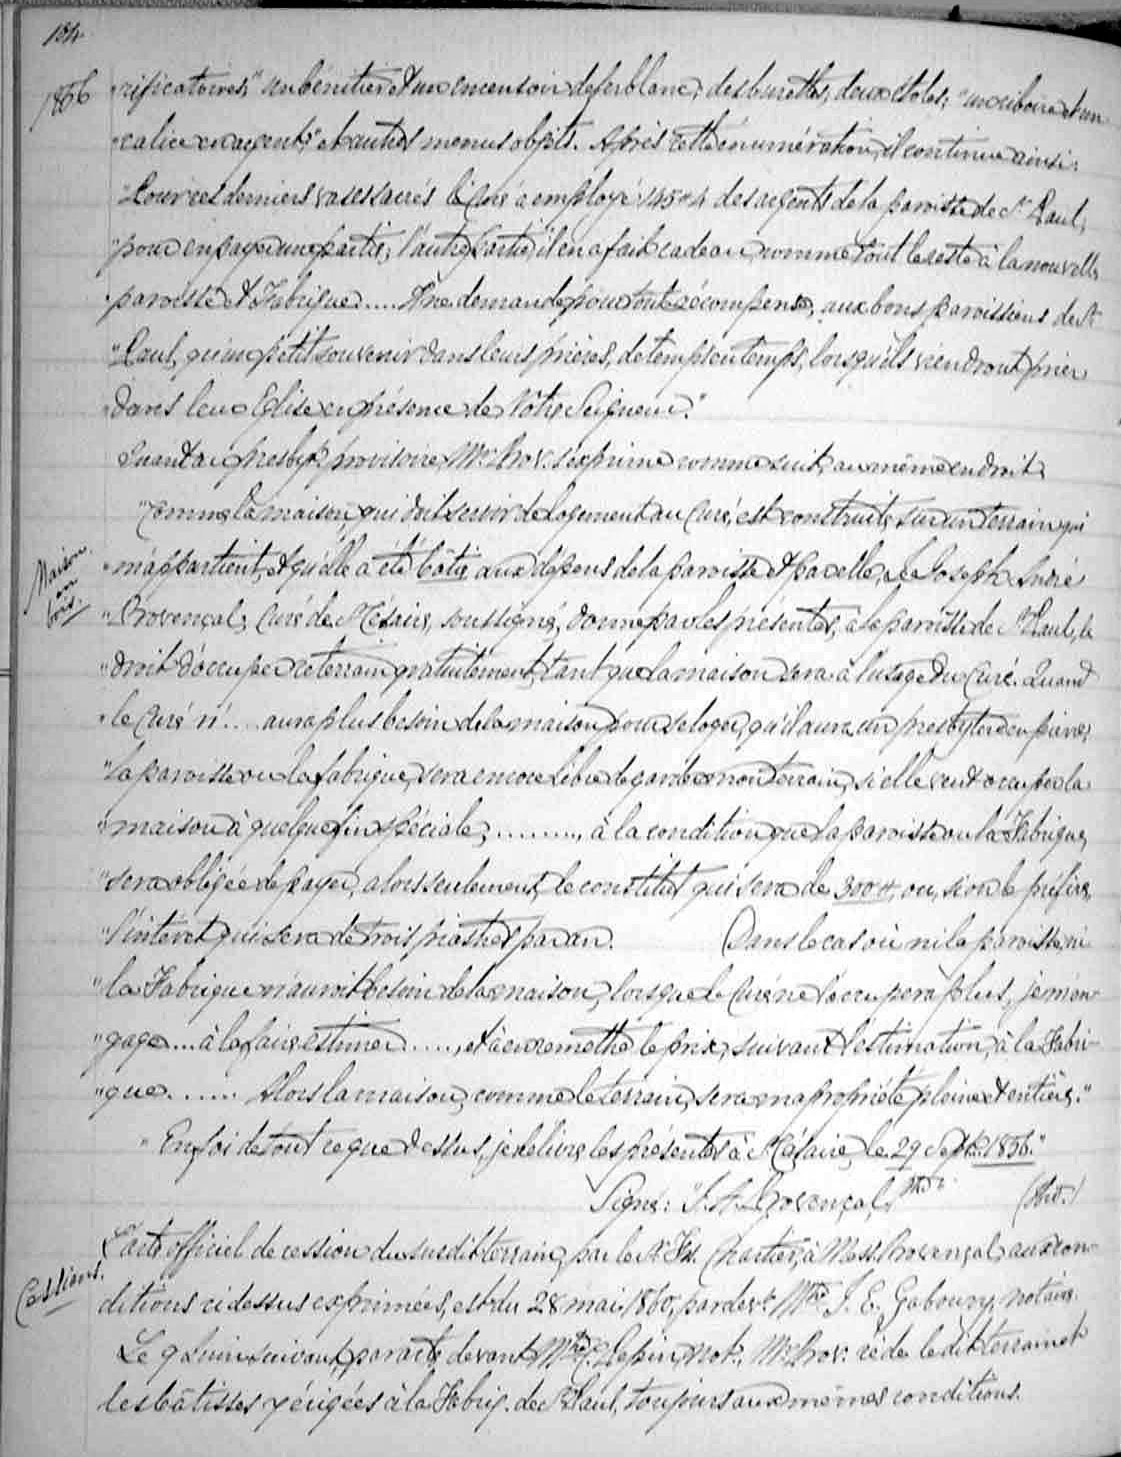 184
1856
"rificatoires," un bénitier et un encensoir de ferblanc, des burettes, deux étoles; "un ciboire et un
"calice en argent," et autres menus objets. Après cette énumération, il continue ainsi:
"Pour ces derniers vases sacrés le Curé a employé 145 des argents de la paroisse de St Paul,
"pour en payer une partie; l'autre partie, il en a fait cadeau, comme tout le reste à la nouvelle
"paroisse et Fabrique..... Il ne demande pour toute récompense, aux bons paroissiens de St
"Paul, qu'un petit souvenir dans leurs prières, de temps en temps, lorsqu'ils viendront prier
"dans leur Eglise en présence de Nôtre Seigneur."
Quant au presbyt. provisoire, Mr Prov. s'exprime comme suit, au même endroit,
"Comme la maison, qui doit servir de logement au Curé, est construite sur un terrain qui
Maison en bois.
"m'appartient, et qu'elle a été bâtie aux dépens de la paroisse et par elle, Je Joseph André
"Provençal, Curé de St Césaire, soussigné, donne par les présentes, à la paroisse de St Paul, le
"droit d'occuper ce terrain gratuitement, tant que la maison sera à l'usage du Curé. Quand
"le Curé n'.... aura plus besoin de la maison pour se loger, qu'il aura un presbytère en pierre,
"la paroisse ou la fabrique, sera encore libre de garder mon terrain, si elle veut occuper la
"maison à quelque fin spéciale, ........., à la condition que la paroisse ou la Fabrique,
"sera obligée de payer, alors seulement, le constitut qui sera de 300 ou, si on le préfère,
"l'intérêt qui sera de trois piastres par an. Dans le cas où ni la paroisse, ni
"la Fabrique n'auroit besoin de la maison, lorsque le Curé ne l'occupera plus, je m'en-
"gage... à la faire estimer....., et à en remettre le prix, suivant l'estimation, à la Fabri-
"que....... Alors la maison, comme le terrain, sera ma propriété pleine et entière."
"En foi de tout ce que dessus, je délivre les présentes à St Césaire, le 29 Septe 1856."
Signé: "J. A. Provençal, Ptre". (Arch.)
Cessions.
L'acte officiel de cession du susdit terrain, par le Sr Frs. Chartier, à Mess. Provençal, aux con-
ditions ci dessus exprimées, est du 28 mai 1860, par devt Mtre J. E. Gaboury, notaire.
Le 9 Juin suivant, par acte devant Mtre Lepin, not., Mr Prov. cède le dit terrain et
les bâtisses y érigées à la Fabriq. de St Paul, toujours aux mêmes conditions.